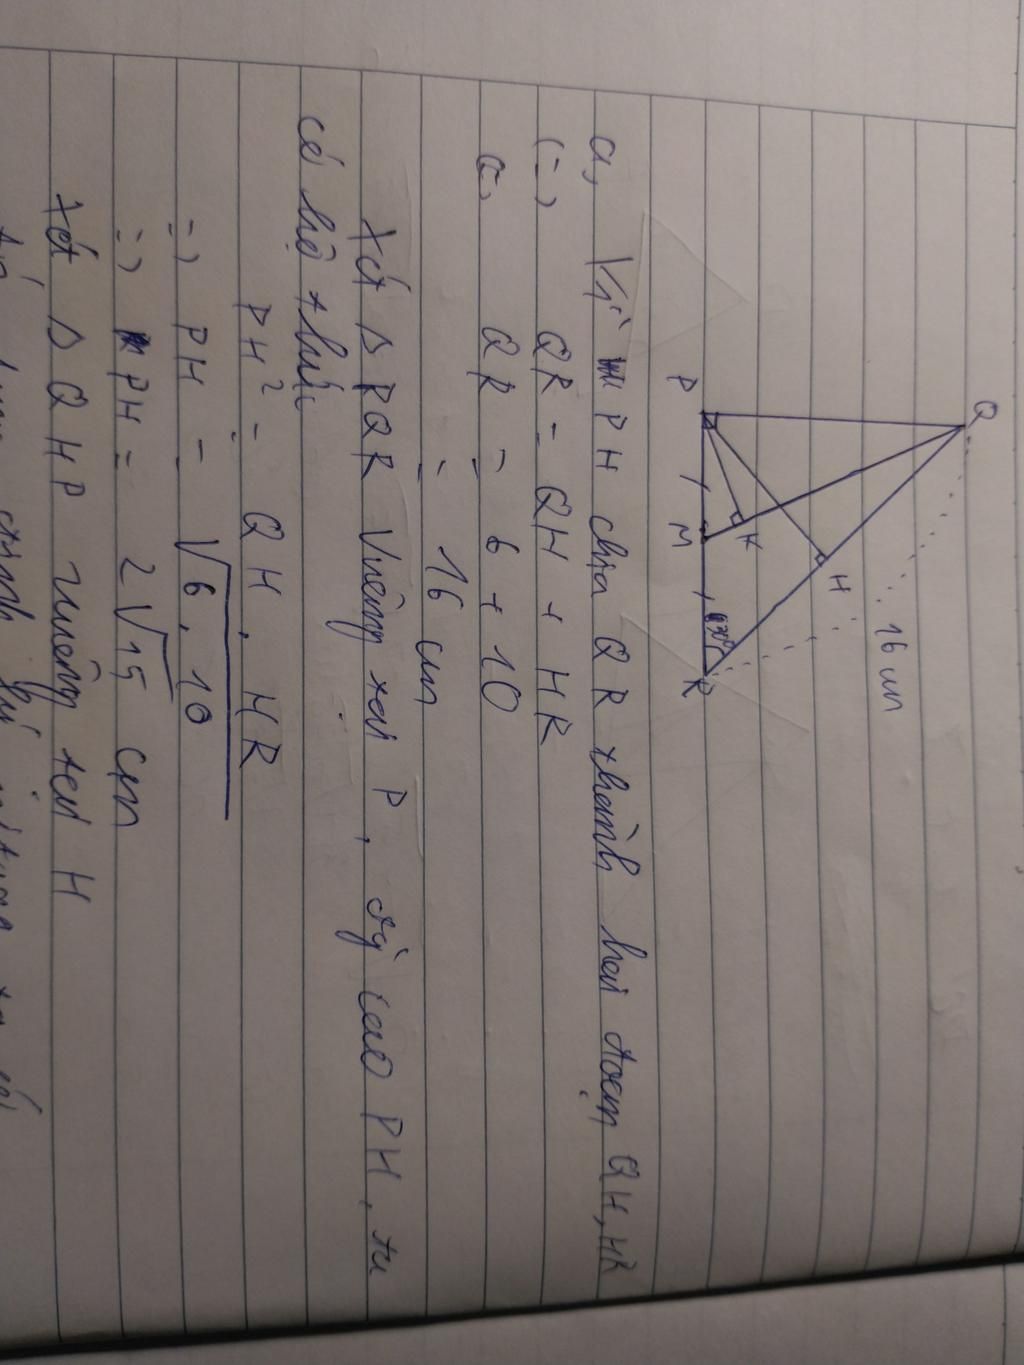 Q
H
16 cm
P
K
M
R
a, Vì PH chia QR thành hai đoạn QH, HR
(=) QR = QH + HR
(=) QR = 6 + 10
= 16 cm
Xét Δ RQR vuông tại P, đg cao PH, ta
có hệ thức
PH² = QH . HR
=> PH = √6.10
=> PH = 2√15 cm
Xét Δ QHP vuông tại H